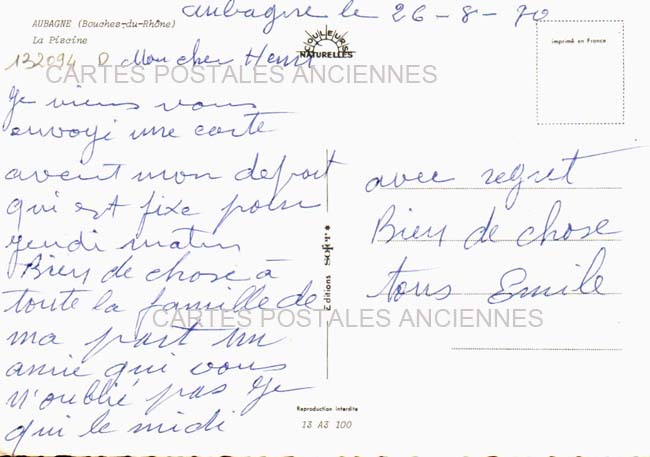 aubagne le 26-8-70
AUBAGNE (Bouches-du-Rhône)
La Piscine
132094 D
COULEURS
NATURELLES
imprimé en France
Mon cher Henri
CARTES POSTALES ANCIENNES
Je viens vous
envoyi une carte
avent mon depart
qui est fixe pour
jendi matin
Bien de chose à
toute la famille de
ma part un
amie qui vous
n'oublie pas Je
qui le midi
avec regret
Bien de chose
tous Emile
Editions SOFT
CARTES POSTALES ANCIENNES
Reproduction interdite
13 A3 100